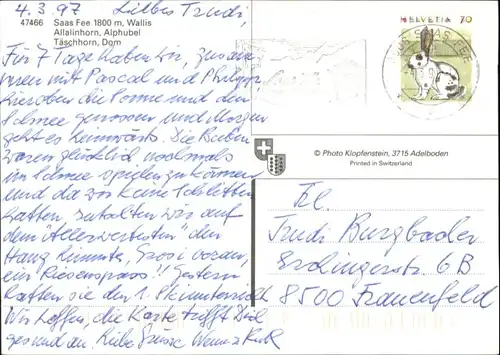 4.3.97 Liebes Trudi,
47466 Saas Fee 1800 m, Wallis
Allalinhorn, Alphubel
Täschhorn, Dom
Für 7 Tage haben wir, zusam
men mit Pascal und Philipp
hier oben die Sonne und den
Schnee genossen und Morgen
geht es heimwärts. Die Buben
waren glücklich, nochmals
im Schnee spielen zu können
und da wir keine Schlitten
hatten, wir auf
dem "Allerwertesten" den
Hang hinunter, Grosi voran,
ein Riesenspass!! Gestern
hatten sie den 1. Skiunterricht
Wir hoffen, die Karte trifft Dich
gesund an. Liebe Grüsse
HELVETIA 70
SAAS FEE
© Photo Klopfenstein, 3715 Adelboden
Printed in Switzerland
Trudi Burgbacher
6B
8500 Frauenfeld